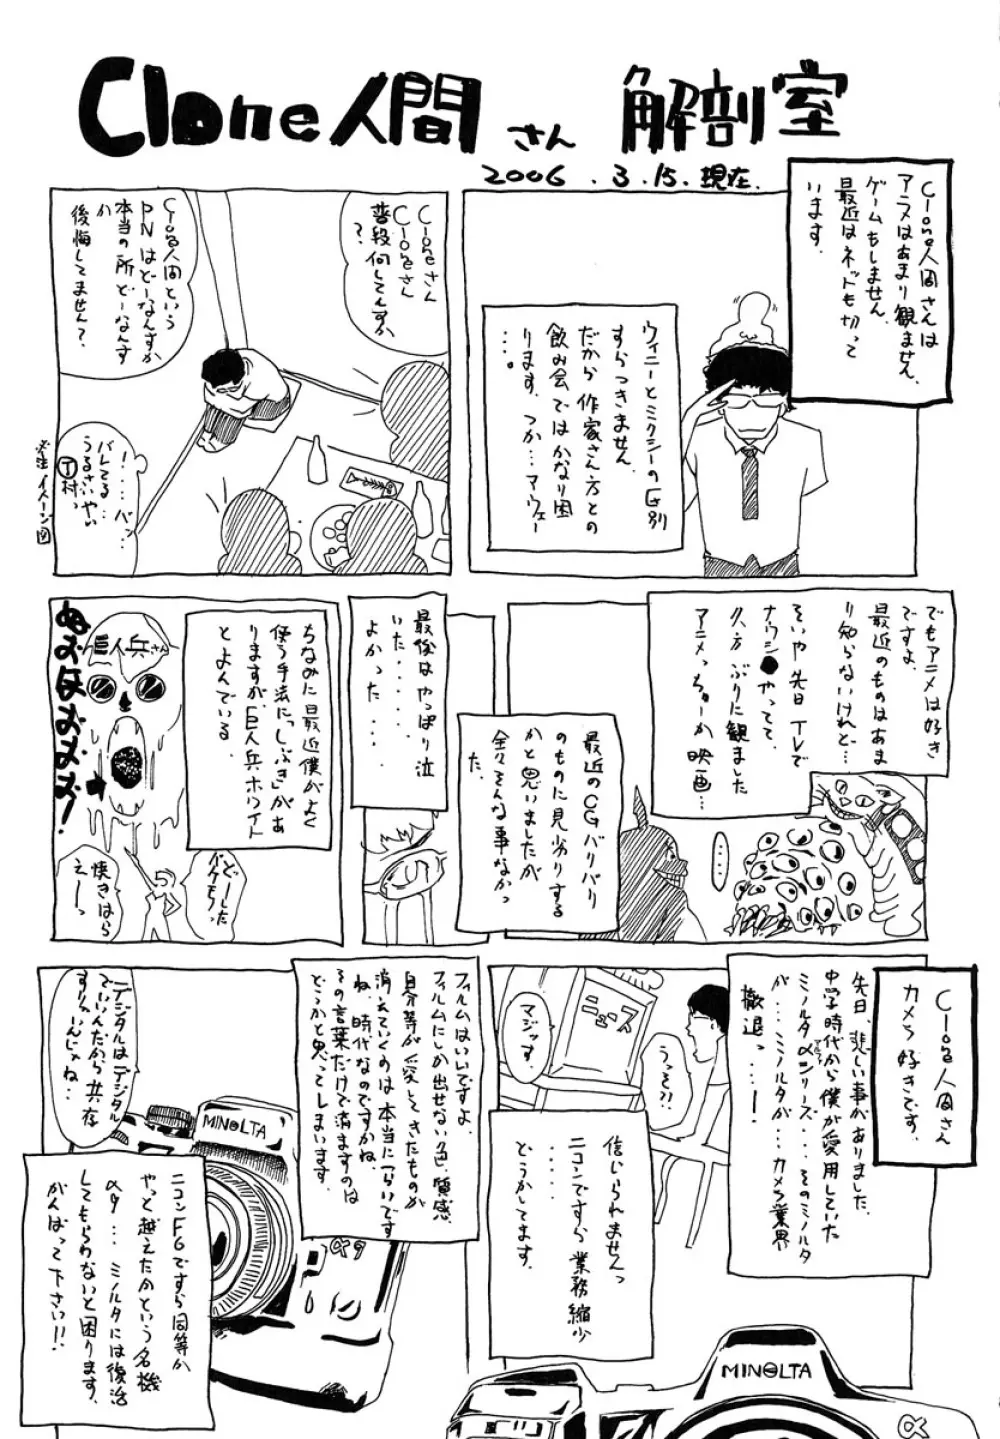 Clone人間さん 解剖室
2006.3.15.現在.
Clone人間さんは
アニメはあまり観ません。
ゲームもしません。
最近はネットも切って
います。
ウィニーとミクシーの区別
すらつきません。
だから作家さん方との
飲み会ではかなり困
ります。つか…アウェー
…。
Cloneさん
Cloneさん
普段何してんすか
?
Clone人間という
PNはどーなんすか
本当の所どーなんす
か
後悔してません?
!……バッ…
バレてる…
うるさいやい
丁村っ
※注 イメージ図
でもアニメは好き
ですよ。
最近のものはあま
り知らないけれど…
そいや先日TVで
ナウシ●やってて
久方ぶりに観ました
アニメっちゅーか映画…
……
最近のCGバリバリ
のものに見劣りする
かと思いましたが
全々そんな事なかっ
た。
最後はやっぱり泣
いた.....
よかった....
ちなみに最近僕がよく
使う手法に「しぶき」があ
りますが、巨人兵ホワイト
とよんでいる
巨人兵さん
ぬおほおおお!
どーした
バケモノっ
焼きはら
えーっ
Clone人間さん
カメラ好きです。
先日、悲しい事がありました。
中学時代から僕が愛用していた
ミノルタαシリーズ...そのミノルタ
が...ミノルタが...カメラ業界
撤退っ...!
ニュース
マジッす。
うっそ?!
信じられませんっ
....
ニコンですら業務縮少
....
どうかしてます。
フィルムはいいですよ。
フィルムにしか出せない色、質感。
自分等が愛してきたものが
消えていくのは本当につらいです
ね。時代なのですかね。
その言葉だけで済ますのは
どうかと思ってしまいます。
デジタルはデジタル
でいいんだから共存
すりゃいんじゃね…
MINOLTA
α9
ニコンF6ですら同等か
やっと越えたかという名機
α9...ミノルタには復活
してもらわないと困ります。
がんばって下さい!!
MINOLTA
α